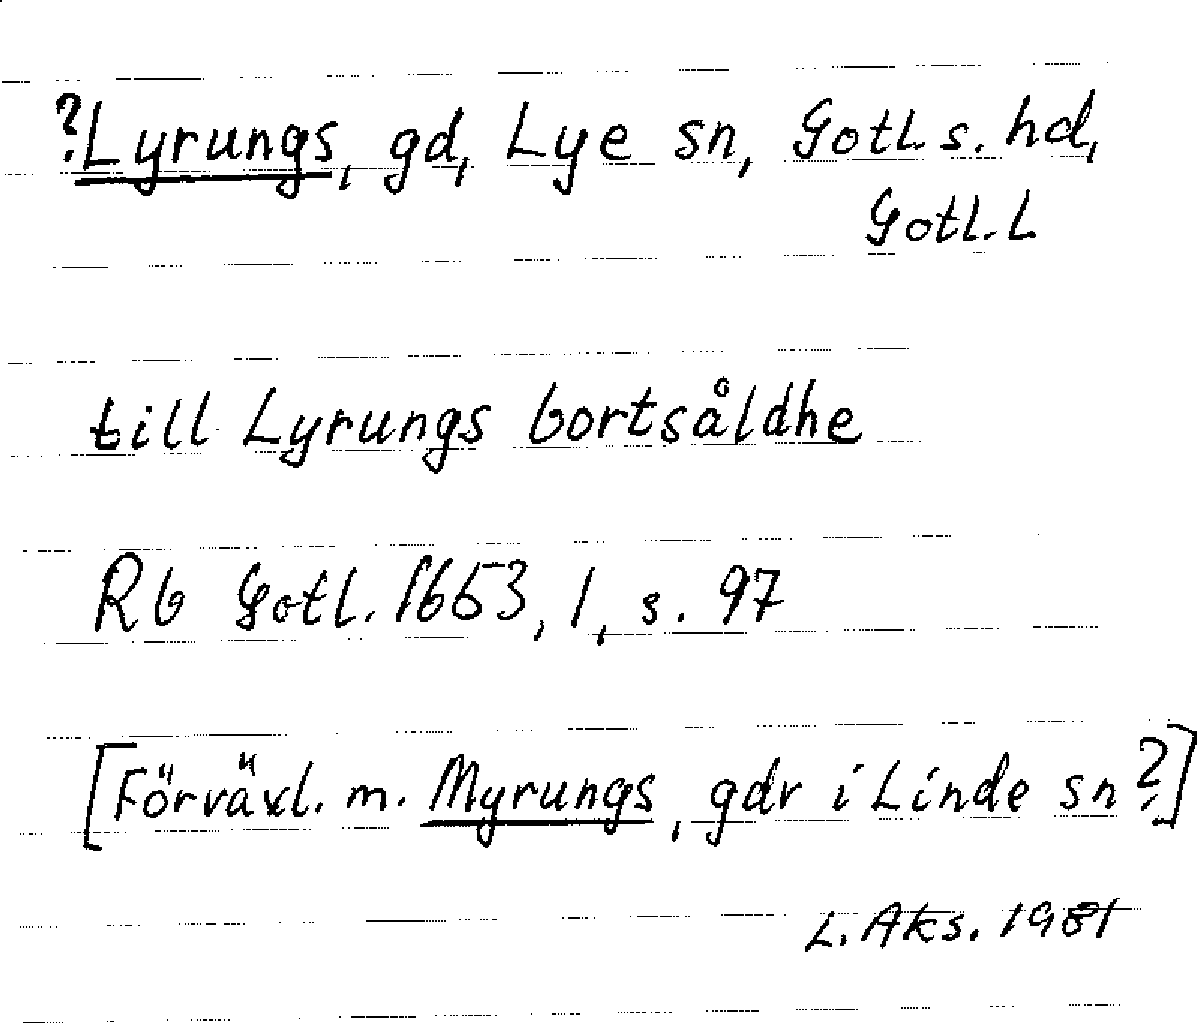 ?Lyrungs, gd, Lye sn, Gotl. s. hd,
Gotl. L
till Lyrungs bortsåldhe
Rb Gotl. 1653, 1, s. 97
[Förväxl. m. Myrungs, gdr i Linde sn?]
L. Aks. 1981